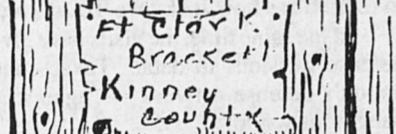 Ft Clark.
Brackett
Kinney
County